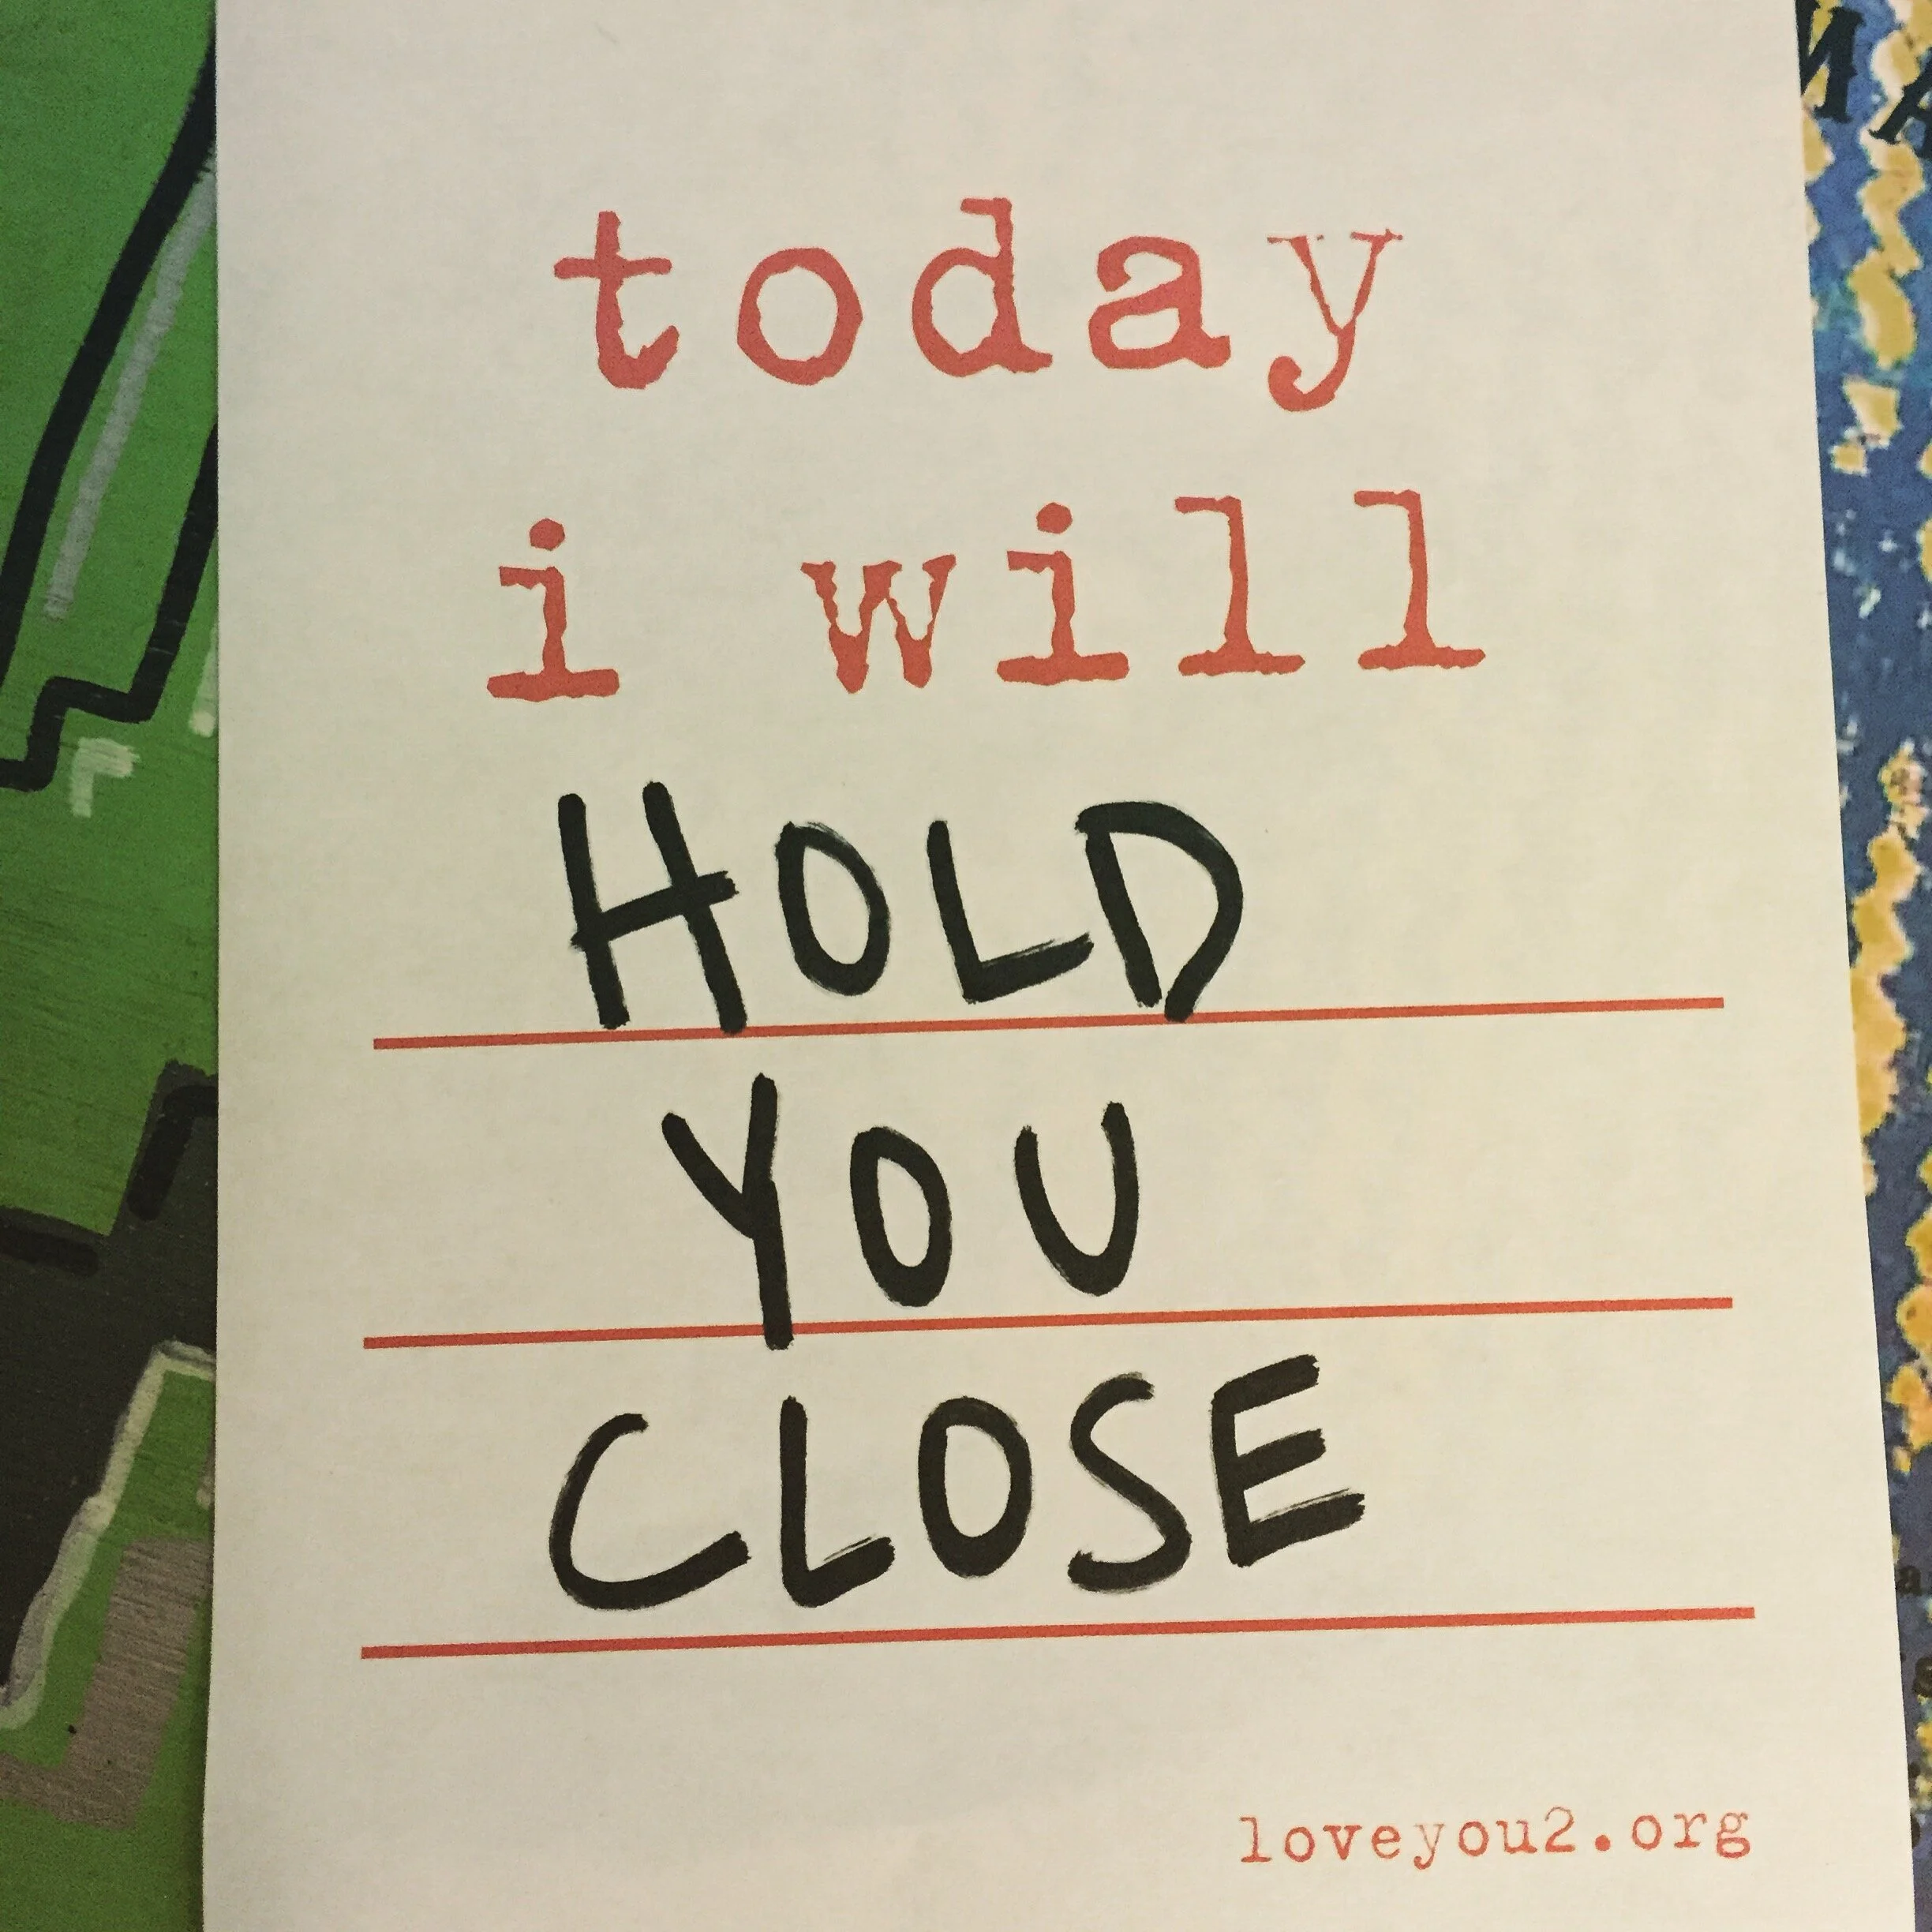 today
i will
HOLD
YOU
CLOSE
loveyou2.org